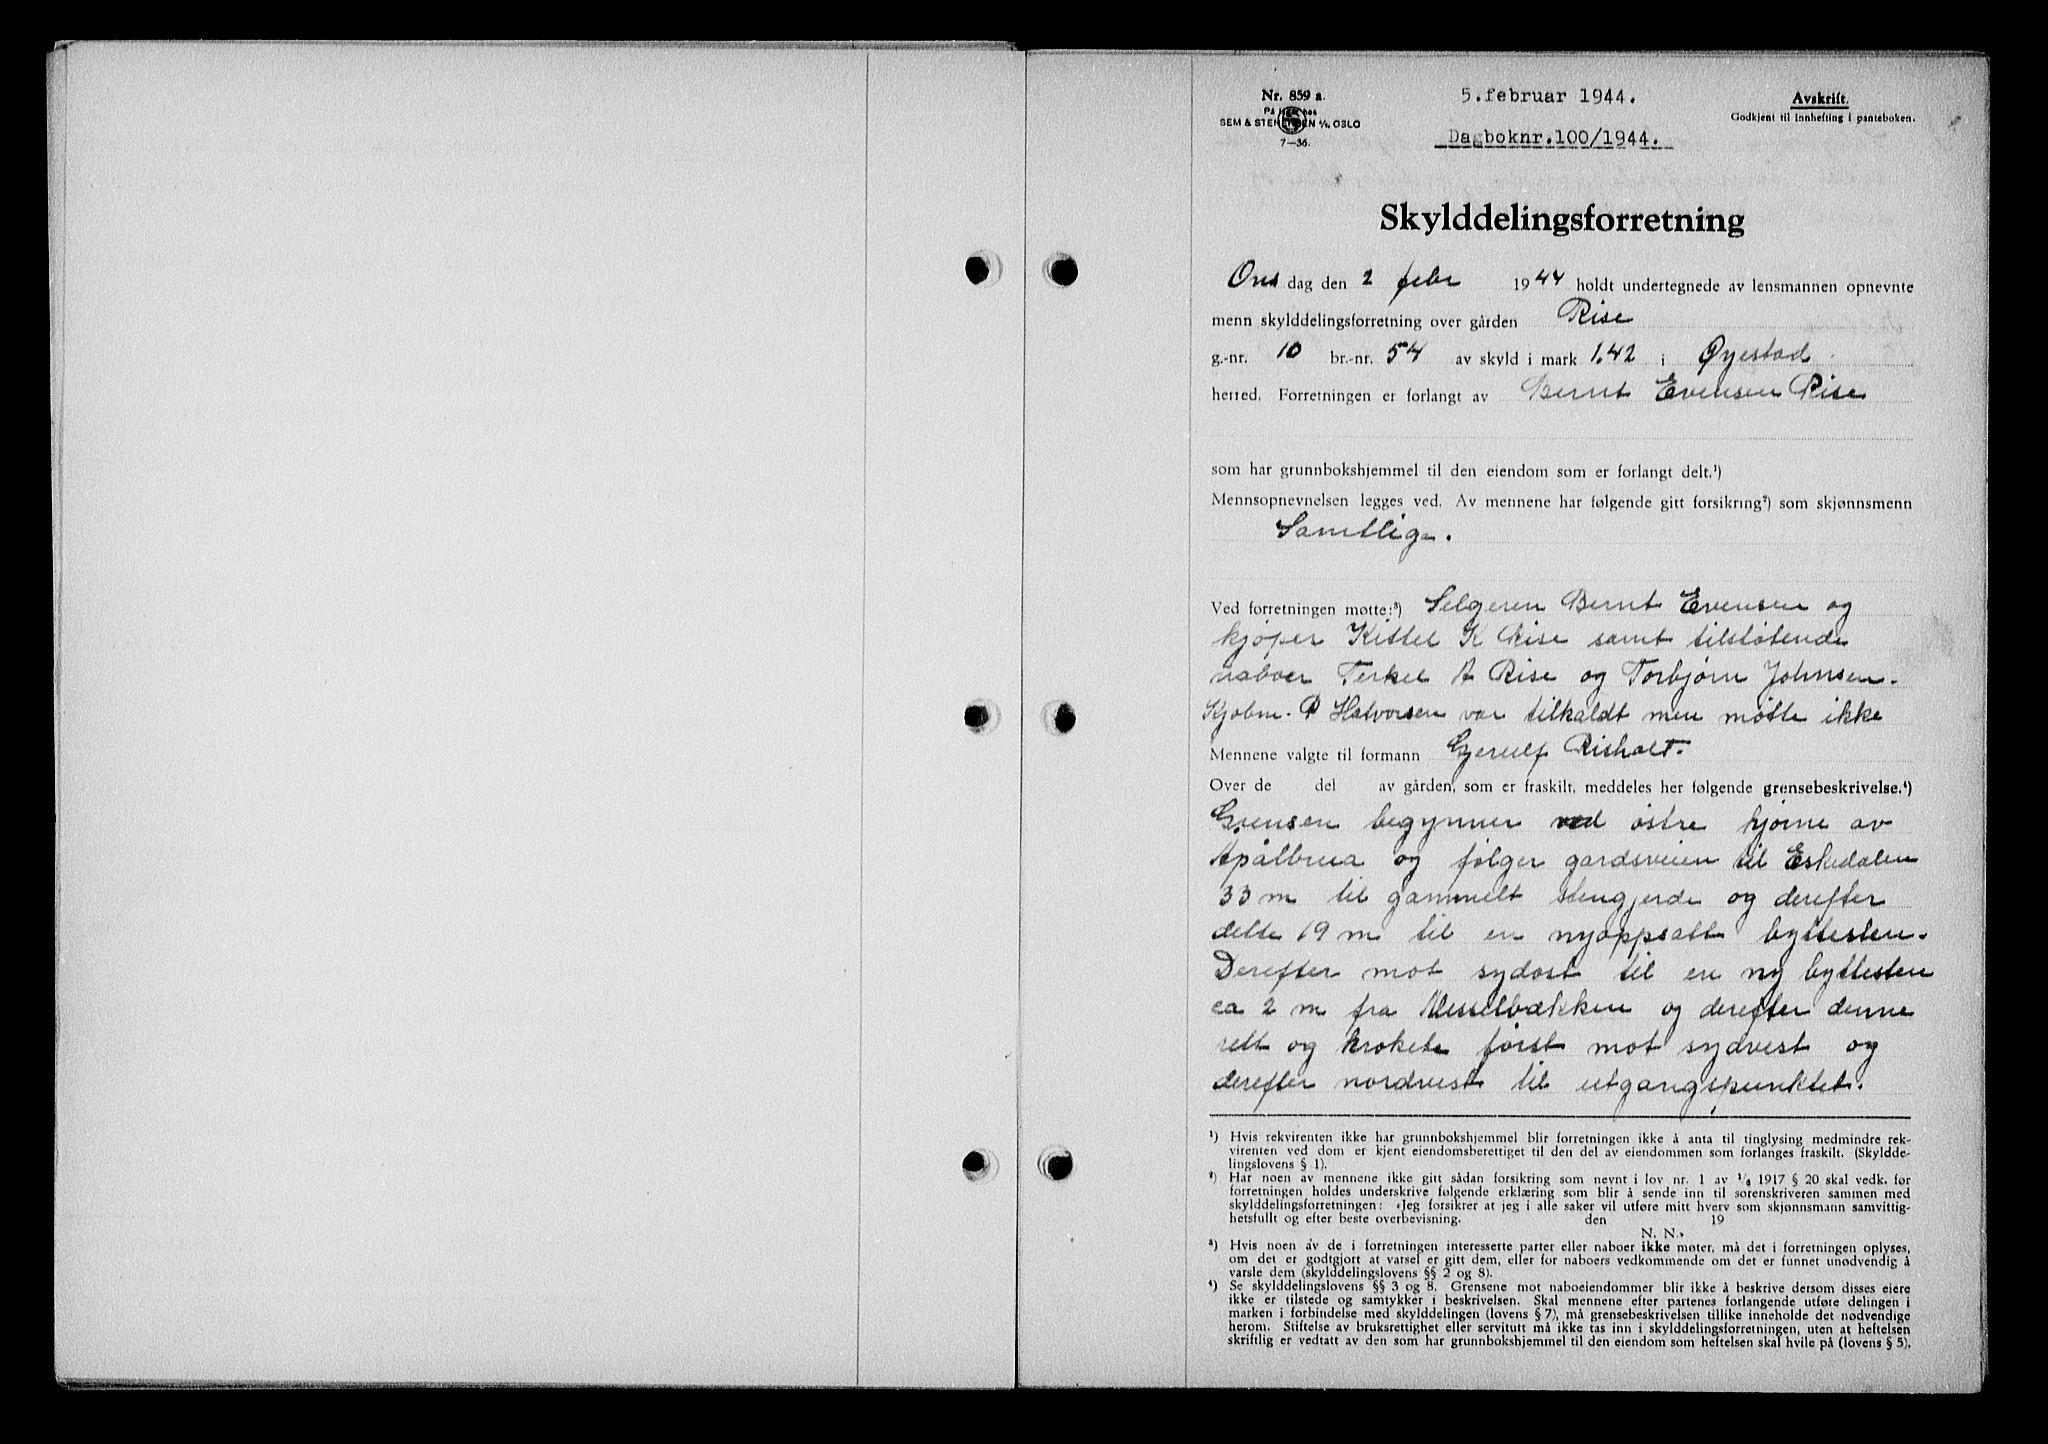 Nr. 859 a.
SEM & STENERSEN A/S, OSLO
7—36.
5.februar 1944.
Dagboknr.100/1944.
Avskrift.
Godkjent til innhefting i panteboken.
Skylddelingsforretning
Ons dag den 2 febr 1944 holdt undertegnede av lensmannen opnevnte
menn skylddelingsforretning over gården Rise
g.-nr. 10 br.-nr. 54 av skyld i mark 1,42 i Øyestad
herred. Forretningen er forlangt av Bernt Evensen Rise
som har grunnbokshjemmel til den eiendom som er forlangt delt.¹)
Mennsopnevnelsen legges ved. Av mennene har følgende gitt forsikring²) som skjønnsmenn
Samtlige.
Ved forretningen møtte:³) Selgeren Bernt Evensen og
kjøper Kittel K Rise samt tilstøtende
naboer Terkel A Rise og Torbjørn Johnsen.
Kjøbm. P Halvorsen var tilkaldt men møtte ikke
Mennene valgte til formann Gjerulf Risholt.
Over de del av gården, som er fraskilt, meddeles her følgende grensebeskrivelse.⁴)
Grensen begynner ved østre hjørne av
Apålbrua og følger gardsveien til Eskedalen
33 m til gammelt stengjerde og derefter
dette 19 m til en nyoppsatt byttesten.
Derefter mot sydost til en ny byttesten
ca 2 m fra Messelbækken og derefter denne
rett og krokete først mot sydvest og
derefter nordvest til utgangspunktet.
¹) Hvis rekvirenten ikke har grunnbokshjemmel blir forretningen ikke å anta til tinglysing medmindre rek-
virenten ved dom er kjent eiendomsberettiget til den del av eiendommen som forlanges fraskilt. (Skyldde-
lingslovens § 1).
²) Har noen av mennene ikke gitt sådan forsikring som nevnt i lov nr. 1 av ¹/₆ 1917 § 20 skal vedk. før
forretningen holdes underskrive følgende erklæring som blir å sende inn til sorenskriveren sammen med
skylddelingsforretningen: «Jeg forsikrer at jeg i alle saker vil utføre mitt hverv som skjønnsmann samvittig-
hetsfullt og efter beste overbevisning. den 19
N. N.»
³) Hvis noen av de i forretningen interesserte parter eller naboer ikke møter, må det i forretningen oplyses,
om det er godtgjort at varsel er gitt dem, eller for naboers vedkommende om det er funnet unødvendig å
varsle dem (skylddelingslovens §§ 2 og 8).
⁴) Se skylddelingslovens §§ 3 og 8. Grensene mot naboeiendommer blir ikke å beskrive dersom disses eiere
ikke er tilstede og samtykker i beskrivelsen. Skal mennene efter partenes forlangende utføre delingen i
marken i forbindelse med skylddelingen (lovens § 7), må grensebeskrivelsen tillike inneholde det nødvendige
herom. Stiftelse av bruksrettighet eller servitutt må ikke tas inn i skylddelingsforretningen, uten at heftelsen
skriftlig er vedtatt av den som har grunnbokshjemmel til den eiendom som heftelsen skal hvile på (lovens § 5).